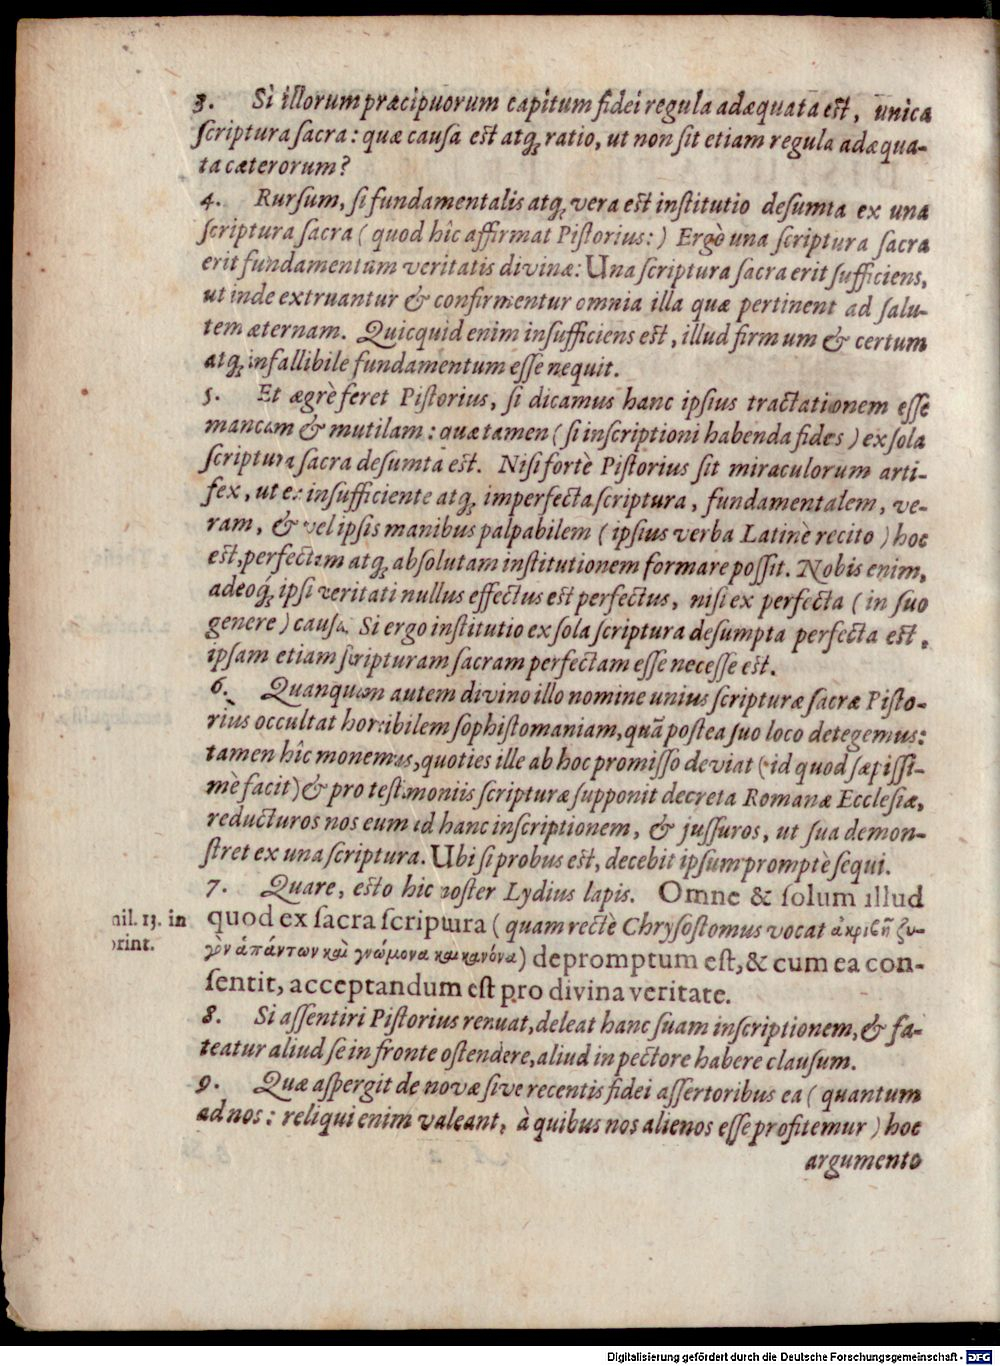 3. Si illorum præcipuorum capitum fidei regula adæquata est, unica
scriptura sacra: quæ causa est atq; ratio, ut non sit etiam regula adæqua-
ta cæterorum?
4. Rursum, si fundamentalis atq; vera est institutio desumta ex una
scriptura sacra ( quod hîc affirmat Pistorius: ) Ergò una scriptura sacra
erit fundamentum veritatis divinæ: Una scriptura sacra erit sufficiens,
ut inde extruantur & confirmentur omnia illa quæ pertinent ad salu-
tem æternam. Quicquid enim insufficiens est, illud firmum & certum
atq; infallibile fundamentum esse nequit.
5. Et ægrè feret Pistorius, si dicamus hanc ipsius tractationem esse
mancam & mutilam: quæ tamen ( si inscriptioni habenda fides ) ex sola
scriptura sacra desumta est. Nisi fortè Pistorius sit miraculorum arti-
fex, ut ex insufficiente atq; imperfecta scriptura, fundamentalem, ve-
ram, & vel ipsis manibus palpabilem ( ipsius verba Latinè recito ) hoc
est, perfectam atq; absolutam institutionem formare possit. Nobis enim,
adeoq; ipsi veritati nullus effectus est perfectus, nisi ex perfecta ( in suo
genere ) causa. Si ergo institutio ex sola scriptura desumpta perfecta est,
ipsam etiam scripturam sacram perfectam esse necesse est.
6. Quanquam autem divino illo nomine unius scripturæ sacræ Pisto-
rius occultat horribilem sophistomaniam, quã postea suo loco detegemus:
tamen hîc monemus, quoties ille ab hoc promisso deviat ( id quod sæpissi-
mè facit ) & pro testimoniis scripturæ supponit decreta Romanæ Ecclesiæ,
reducturos nos eum ad hanc inscriptionem, & jussuros, ut sua demon-
stret ex una scriptura. Ubi si probus est, decebit ipsum promptè sequi.
7. Quare, esto hic noster Lydius lapis. Omne & solum illud
mil. 13. in
print.
quod ex sacra scriptura ( quam rectè Chrysostomus vocat ἀκριβῆ ζυ-
γὸν ἁπάντων καὶ γνώμονα καὶ κανόνα ) depromptum est, & cum ea con-
sentit, acceptandum est pro divina veritate.
8. Si assentiri Pistorius renuat, deleat hanc suam inscriptionem, & fa-
teatur aliud se in fronte ostendere, aliud in pectore habere clausum.
9. Quæ aspergit de novæ sive recentis fidei assertoribus ea ( quantum
ad nos: reliqui enim valeant, à quibus nos alienos esse profitemur ) hoc
argumento
Digitalisierung gefördert durch die Deutsche Forschungsgemeinschaft - DFG